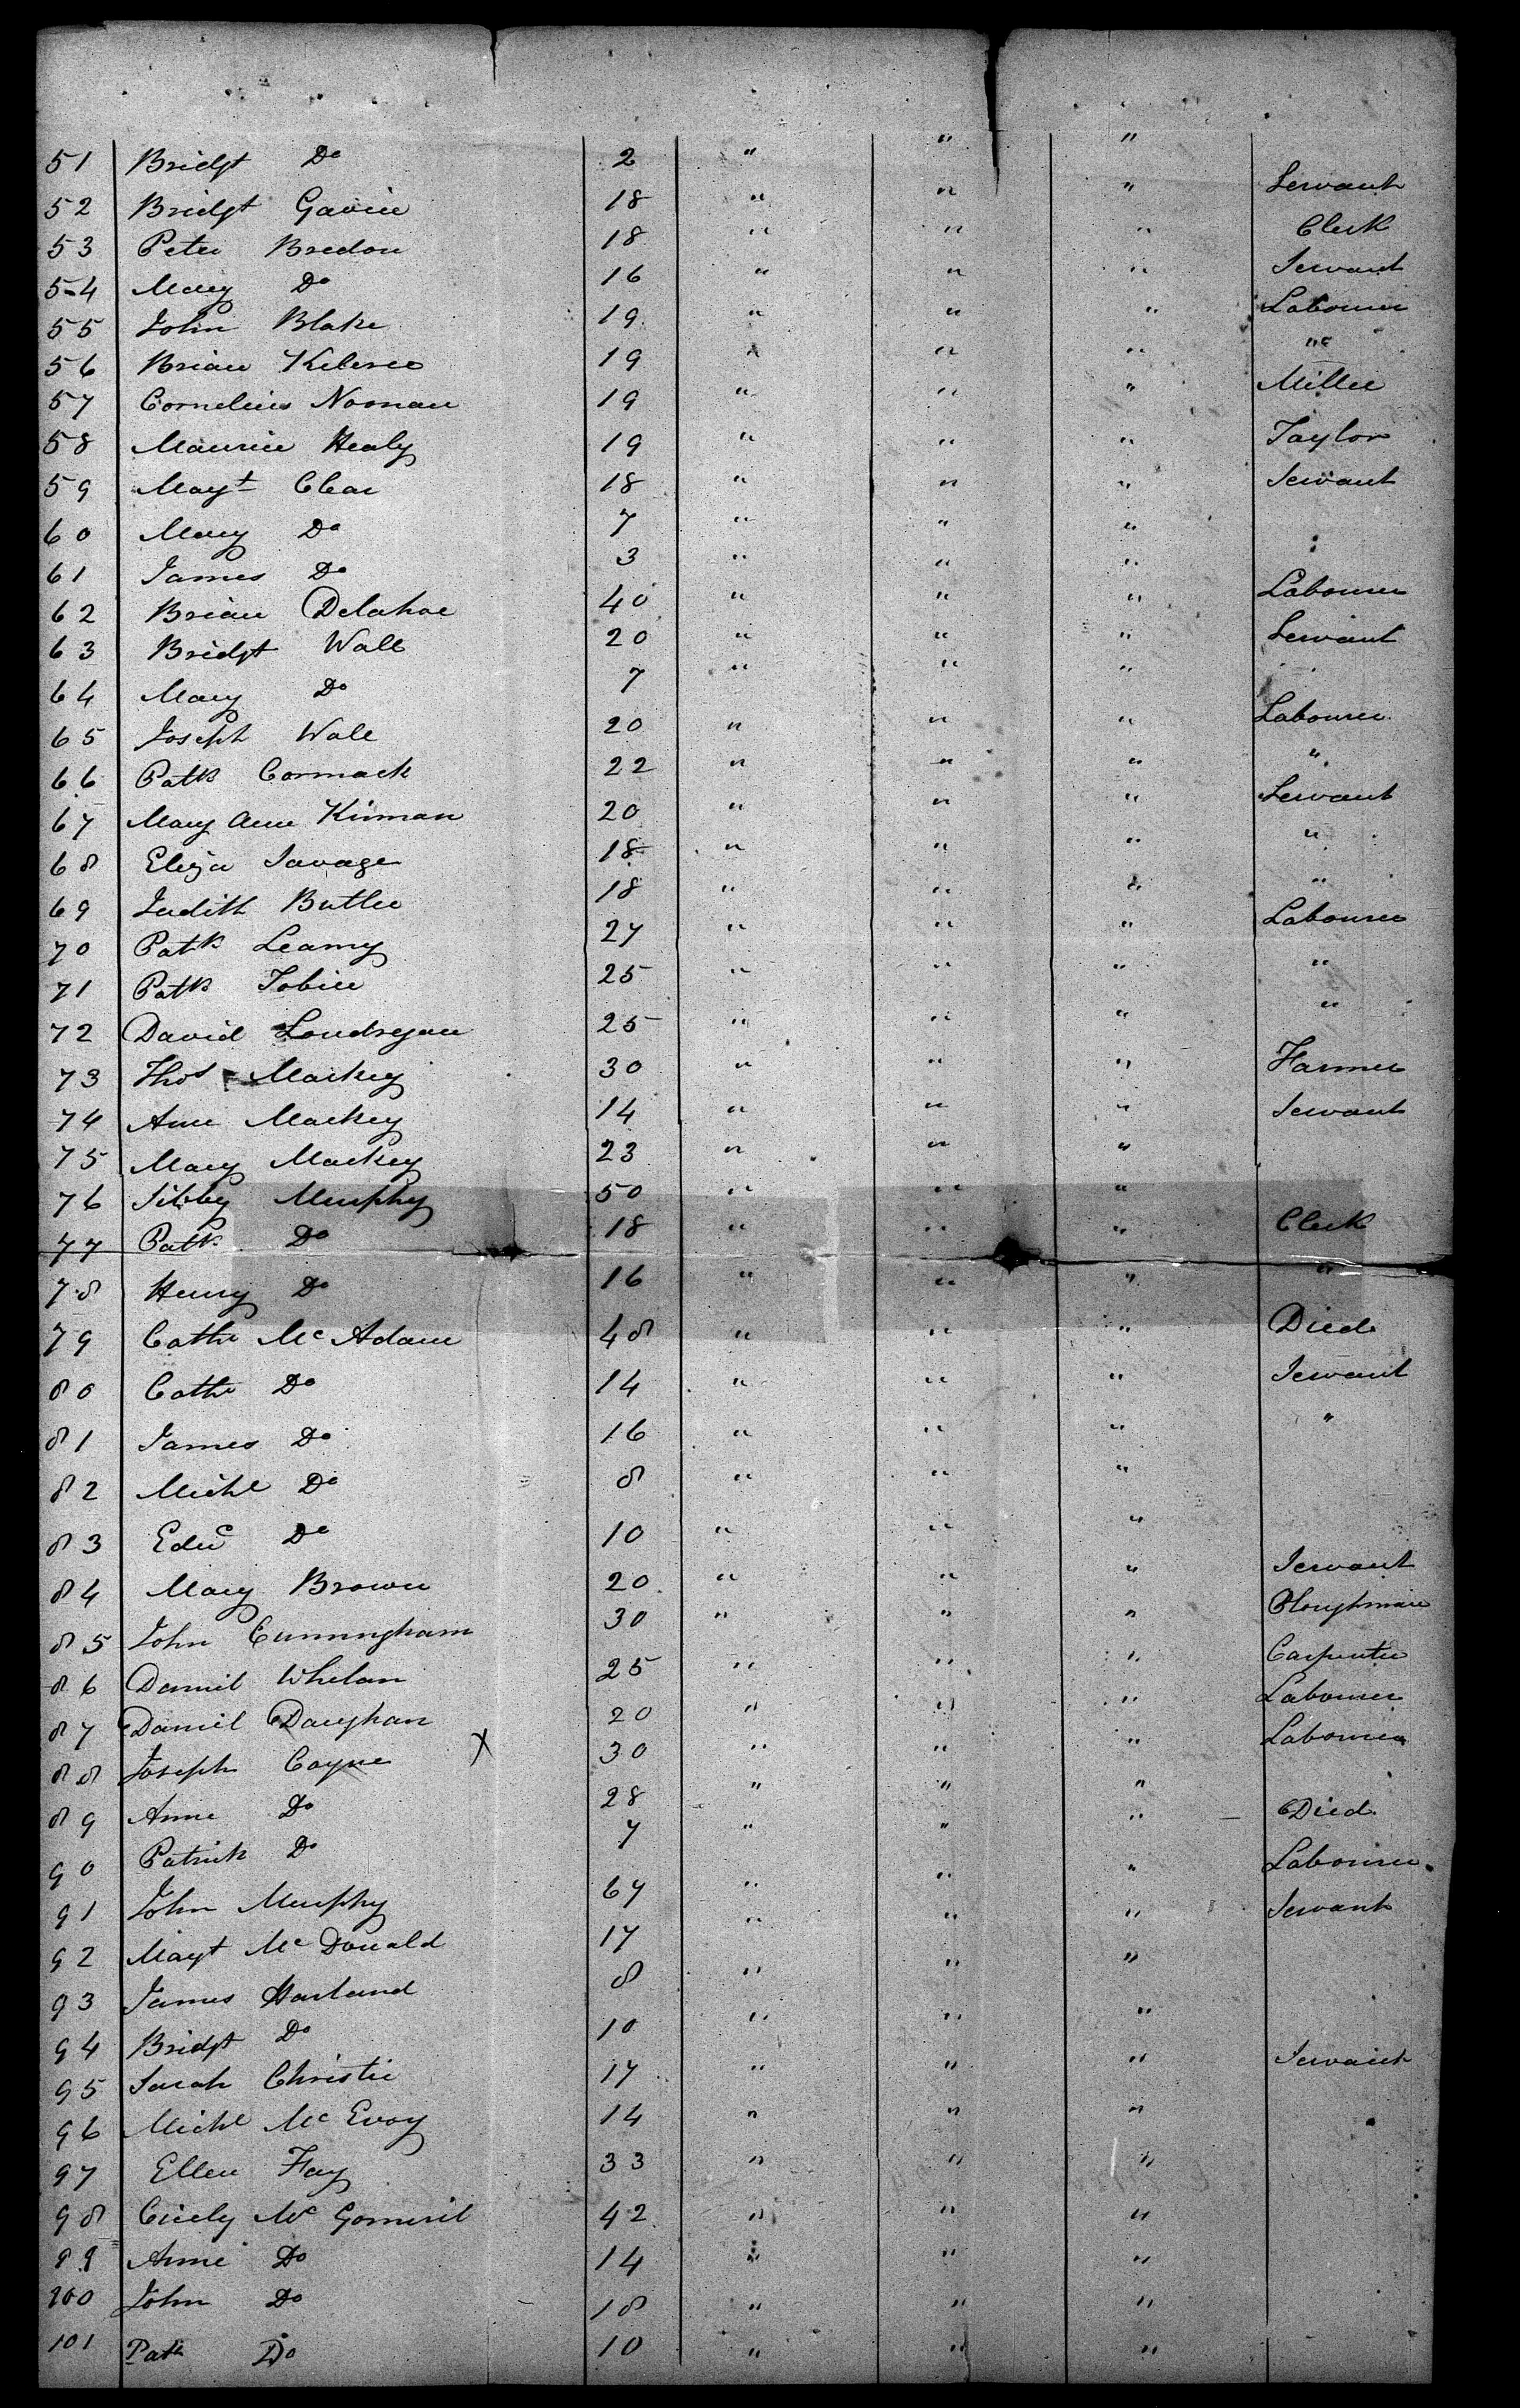 51 Bridgt Do 2 " " "
52 Bridgt Gavin 18 " " " Servant
53 Peter Bredon 18 " " " Clerk
54 Mary Do 16 " " " Servant
55 John Blake 19 " " " Labourer
56 Brian 19 " " " "
57 Cornelius Noonan 19 " " " Miller
58 Maurice Healy 19 " " " Taylor
59 Mayt Clear 18 " " " Servant
60 Mary Do 7 " " "
61 James Do 3 " " "
62 Brian Delahoe 40 " " " Labourer
63 Bridgt Wall 20 " " " Servant
64 Mary Do 7 " " "
65 Joseph Wall 20 " " " Labourer
66 Patk Cormack 22 " " " "
67 Mary Ann Kirnan 20 " " " Servant
68 Eliza Savage 18 " " " "
69 Judith Butler 18 " " " "
70 Patk Leamy 27 " " " Labourer
71 Patk Tobin 25 " " " "
72 David Londregan 25 " " " "
73 Thos Mackey 30 " " " Farmer
74 Anne Mackey 14 " " " Servant
75 Mary Mackey 23 " " "
76 Sibby Murphy 50 " " "
77 Patk Do 18 " " " Clerk
78 Henry Do 16 " " " "
79 Cathe Mc Adam 48 " " " Died
80 Cathe Do 14 " " " Servant
81 James Do 16 " " " "
82 Michl Do 8 " " "
83 Edwd Do 10 " " "
84 Mary Brown 20 " " " Servant
85 John Cunningham 30 " " " Ploughman
86 Daniel Whelan 25 " " " Carpenter
87 Daniel Daughan 20 " " " Labourer
88 Joseph Coyne X 30 " " " Labourer
89 Anne Do 28 " " "
90 Patrick Do 7 " " " Died
91 John Murphy 67 " " " Labourer
92 Mayt Mc Donald 17 " " " Servant
93 James Harland 8 " " "
94 Bridgt Do 10 " " "
95 Sarah Christie 17 " " " Servant
96 Michl Mc Evoy 14 " " "
97 Ellen Fay 33 " " "
98 Cicely Mc Gomeril 42 " " "
99 Anne Do 14 " " "
100 John Do 18 " " "
101 Patk Do 10 " " "